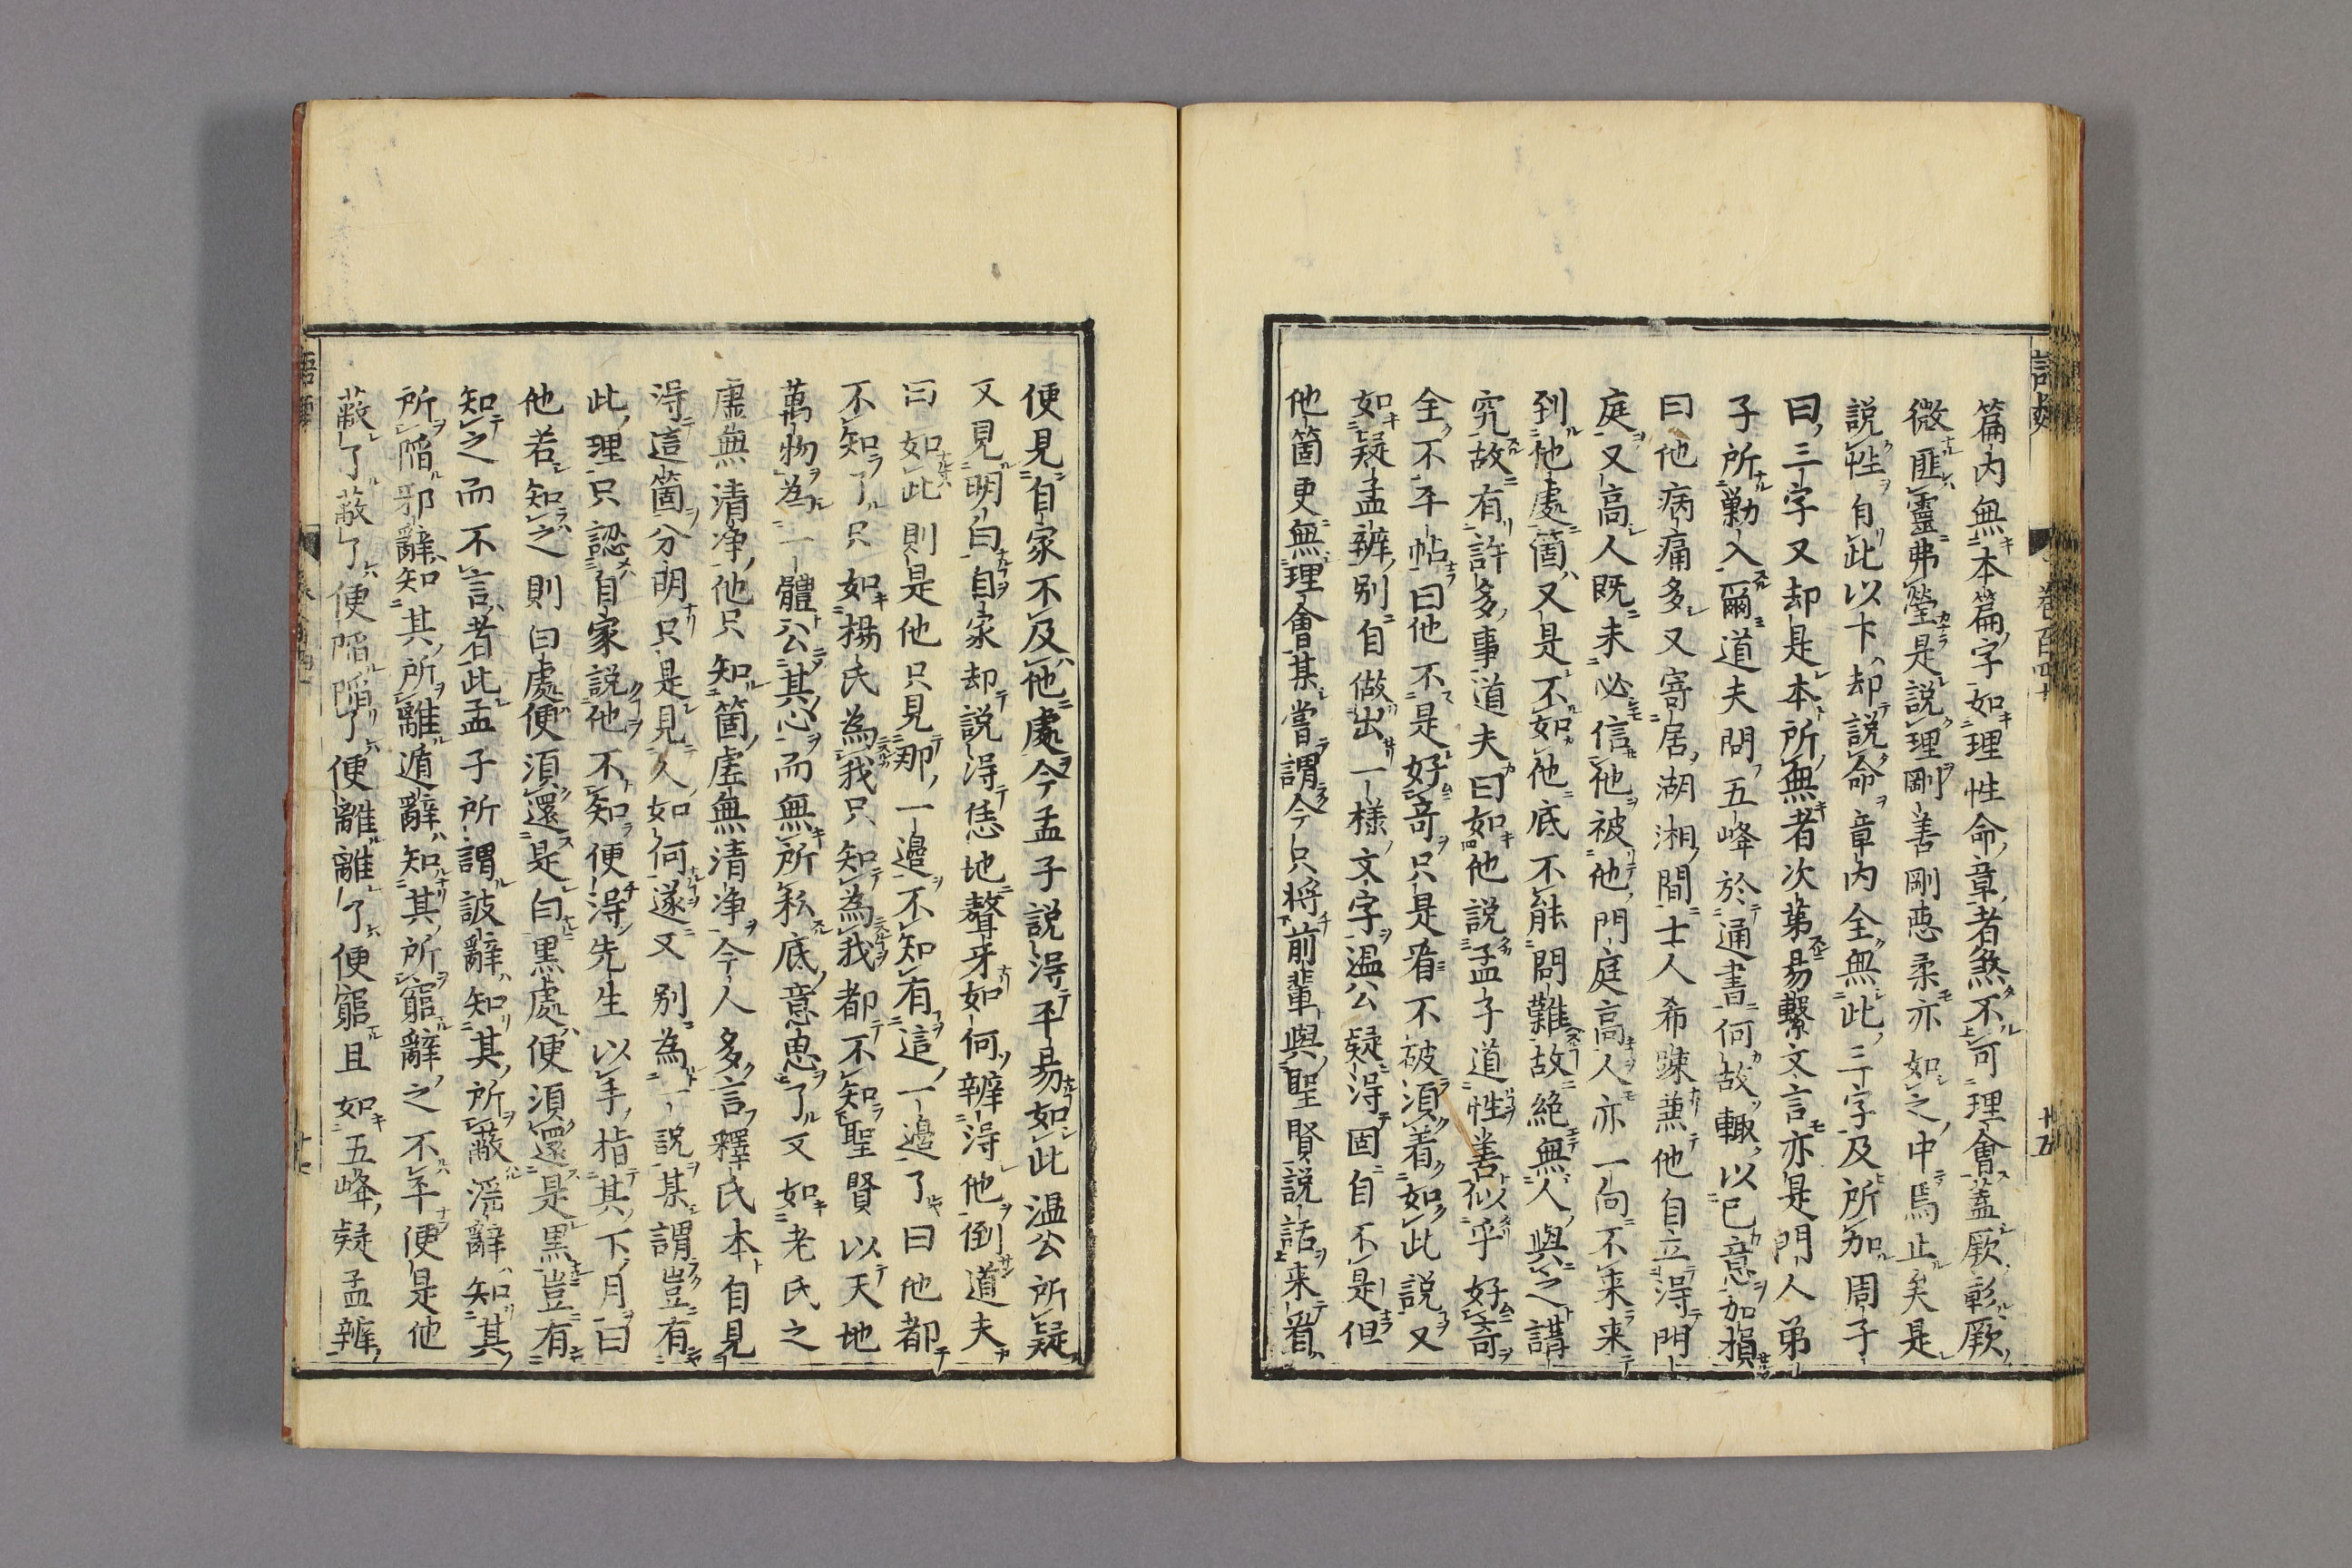 篇內無本篇字如理性命章者煞不可理會蓋厥彰厥
微匪靈弗瑩是説理剛善剛惡柔亦如之中焉止矣是
説性自此以下却説命章內全無此三字及所加周子
曰三字又却是本所無者次第易繫文言亦是門人弟
子所勦入爾道夫問五峰於通書何故輙以已意加損
曰他病痛多又寄居湖湘間士人希踈兼他自立淂門
庭又高人既未必信他被他門庭高人亦一向不来来
到他處箇又是不如他底不能問難故絶無人與之講
究故有許多事道夫曰如他説孟子道性善似乎好奇
全不平帖曰他不是好奇只是看不破須着如此説又
如疑孟辨别自做出一様文字温公疑淂固自不是但
他箇更無理會某嘗謂今只将前輩與聖賢説話来看
便見自家不及他處今孟子説淂平易如此温公所疑
又見明白自家却説淂恁地聱牙如何辨淂他倒道夫
曰如此則是他只見那一邉不知有這一邉了曰他都
不知了只如楊氏為我只知為我都不知聖賢以天地
萬物為一體公其心而無所私底意思了又如老氏之
虛無清净他只知箇虛無清净今人多言釋氏本自見
淂這箇分明只是見乆如何遂又别為一説某謂豈有
此理只認自家説他不知便淂先生以手指其下月曰
他若知之則白處便須還是白黒處便須還是黒豈有
知之而不言者此孟子所謂詖辭知其所蔽滛辭知其
所陷邪辭知其所離遁辭知其所窮辭之不平便是他
蔽了蔽了便陷陷了便離離了便窮且如五峰疑孟辨